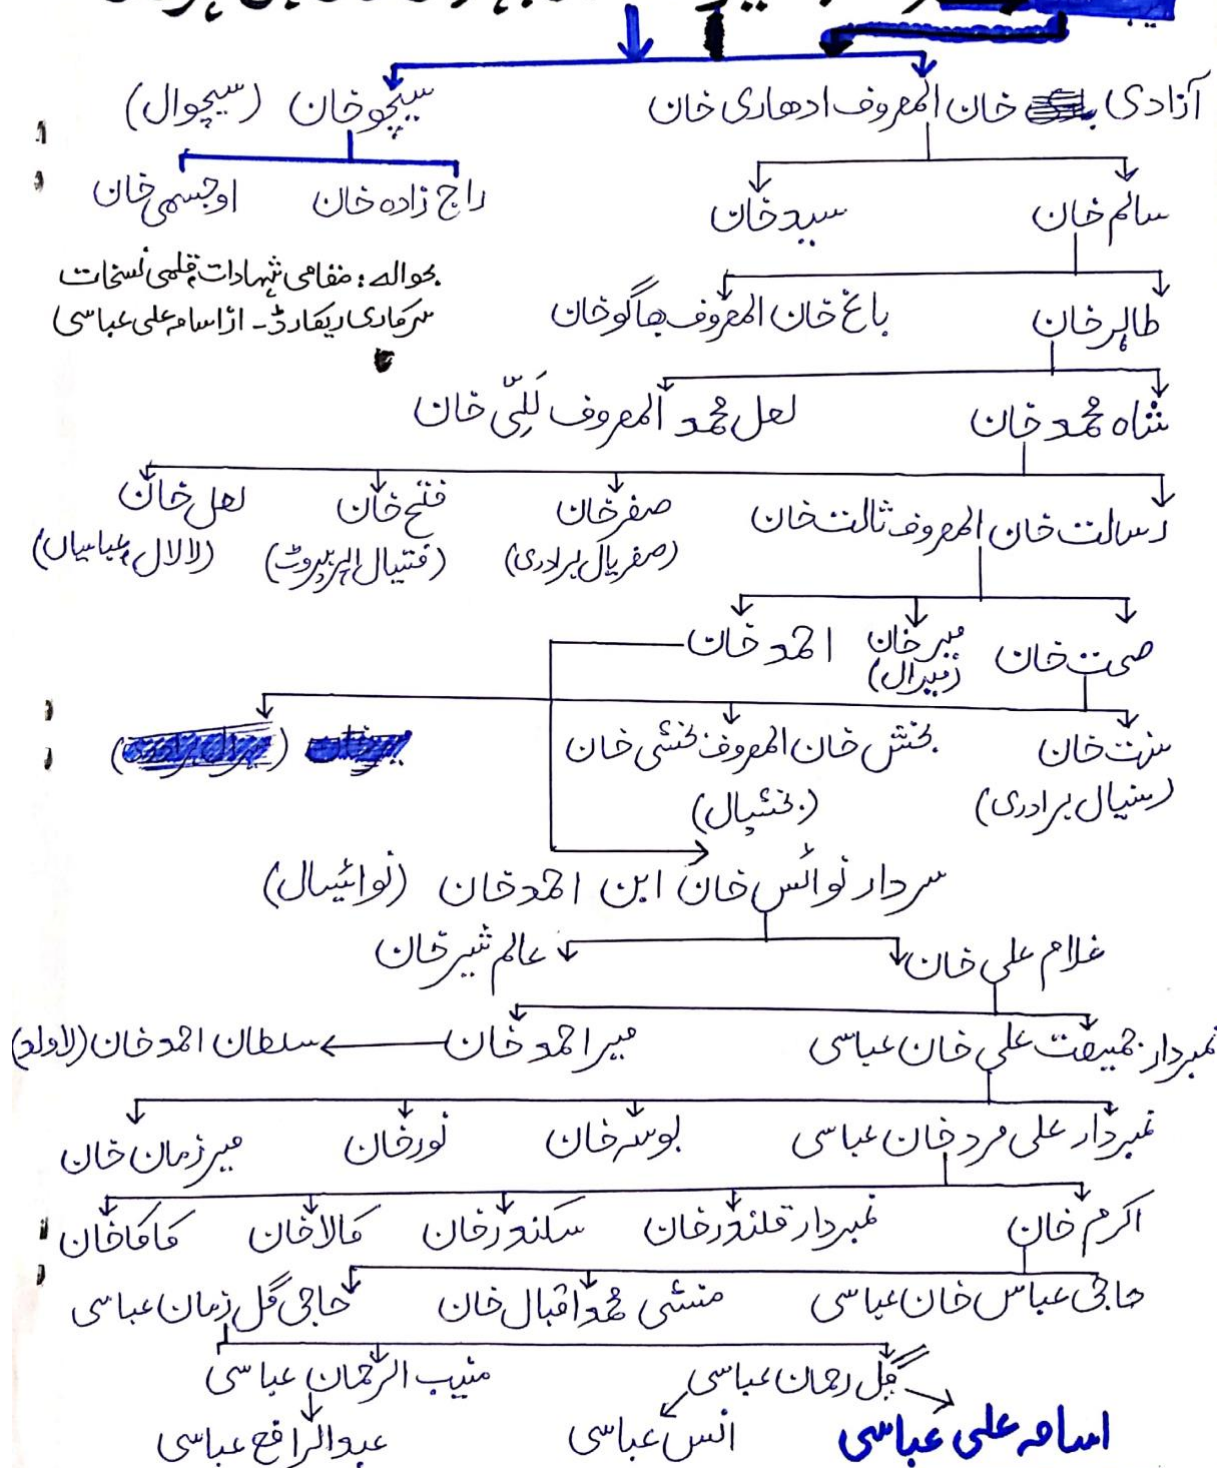 آزادی خان المعروف ادھاری خان
سیچو خان (سیچوال)
راج زادہ خان
اوجسمی خان
سالم خان
سید خان
بحوالہ: مقامی شہادات، قلمی نسخات
سرکاری ریکارڈ۔ از اسامہ علی عباسی
طاہر خان
باغ خان المعروف بھاگو خان
شاہ محمد خان
لعل محمد المعروف لَلِّی خان
رسالت خان المعروف ثالت خان
صفر خان
(صفریال برادری)
فتح خان
(فتیال اپر بیروٹ)
لعل خان
(لالال عباسیاں)
صحت خان
میر خان
(میرال)
احمد خان
منت خان
(منیال برادری)
بخش خان المعروف بخشی خان
(بخشیال)
سردار نوائس خان ابن احمد خان (نوائیسال)
غلام علی خان
عالم شیر خان
نمبردار جمیعت علی خان عباسی
میر احمد خان
سلطان احمد خان (لاولد)
نمبردار علی مرد خان عباسی
بوسہ خان
نور خان
میر زمان خان
اکرم خان
نمبردار قلندر خان
سکندر خان
کالا خان
کاکا خان
حاجی عباس خان عباسی
منشی محمد اقبال خان
حاجی گل زمان عباسی
گل رحمان عباسی
منیب الرحمان عباسی
اسامہ علی عباسی
انس عباسی
عبدالرافع عباسی